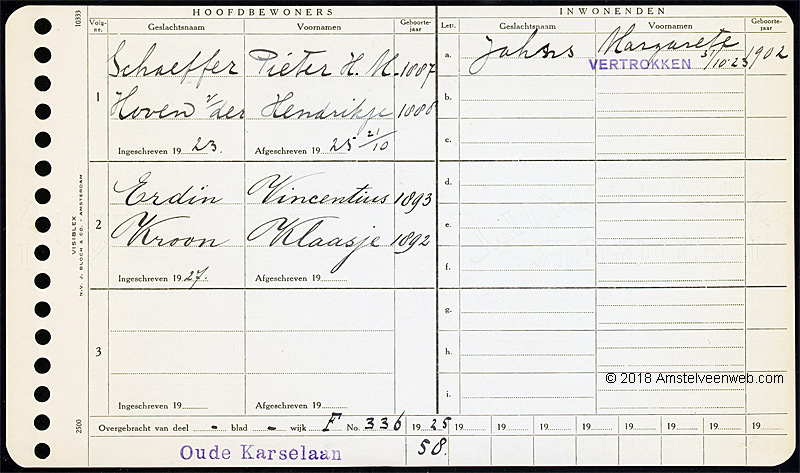 10333
VISIBLEX
N.V. J. BLOCH & CO. - AMSTERDAM
2500
HOOFDBEWONERS
Volg-nr. Geslachtsnaam Voornamen Geboorte-jaar
1
Schaeffer Pieter H. M. 1887
Hoven v/der Hendrikje 1888
Ingeschreven 19 23. Afgeschreven 19 25 21/10
2
Erdin Vincentius 1893
Kroon Klaasje 1892
Ingeschreven 19 27. Afgeschreven 19
3
Ingeschreven 19 Afgeschreven 19
INWONENDEN
Lett. Geslachtsnaam Voornamen Geboorte-jaar
a. Johns Margarete 1902
VERTROKKEN 31/10-23
b.
c.
d.
e.
f.
g.
h.
i.
© 2018 Amstelveenweb.com
Overgebracht van deel - blad - wijk F No. 336 19 25 19 19 19 19 19 19 19
Oude Karselaan 58.